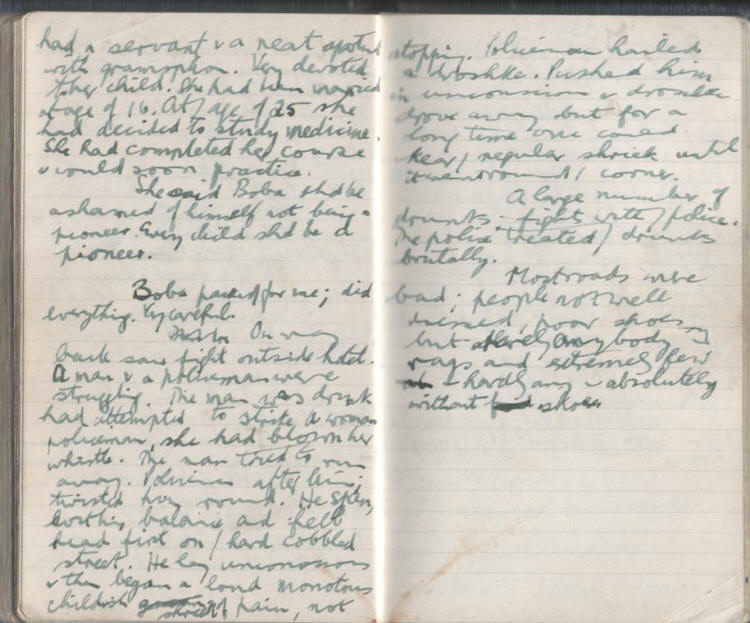 had a servant & a neat apartmt
with gramophon. Very devoted
to her child. She had been married
at age of 16. At / age of 25 she
had decided to study medicine.
She had completed her course
& would soon practice.
She said Boba shd be
ashamed of himself not being a
pioneer. Every child shd be a
pioneer.
Boba packed for me; did
everything. Vy careful.
On way
back saw fight outside hotel.
A man & a policeman were
struggling. The man was drunk
had attempted to strike a woman
policeman, she had blown her
whistle. The man tried to run
away. Policeman after him;
twisted him round. He spun,
lost his balance and fell
head first on / hard cobbled
street. He lay unconscious
& then began a loud monotonous
childish shriek of pain, not
stopping. Policeman hailed
a droshke. Pushed him
in unconscious & droshke
drove away but for a
long time one could
hear / regular shriek until
it went round / corner.
A large number of
drunks - fight with / police.
The police treated / drunks
brutally.
Most roads were
bad; people not well
dressed, poor shoes,
but hardly anybody in
rags and extremely few
- hardly any - absolutely
without shoes.